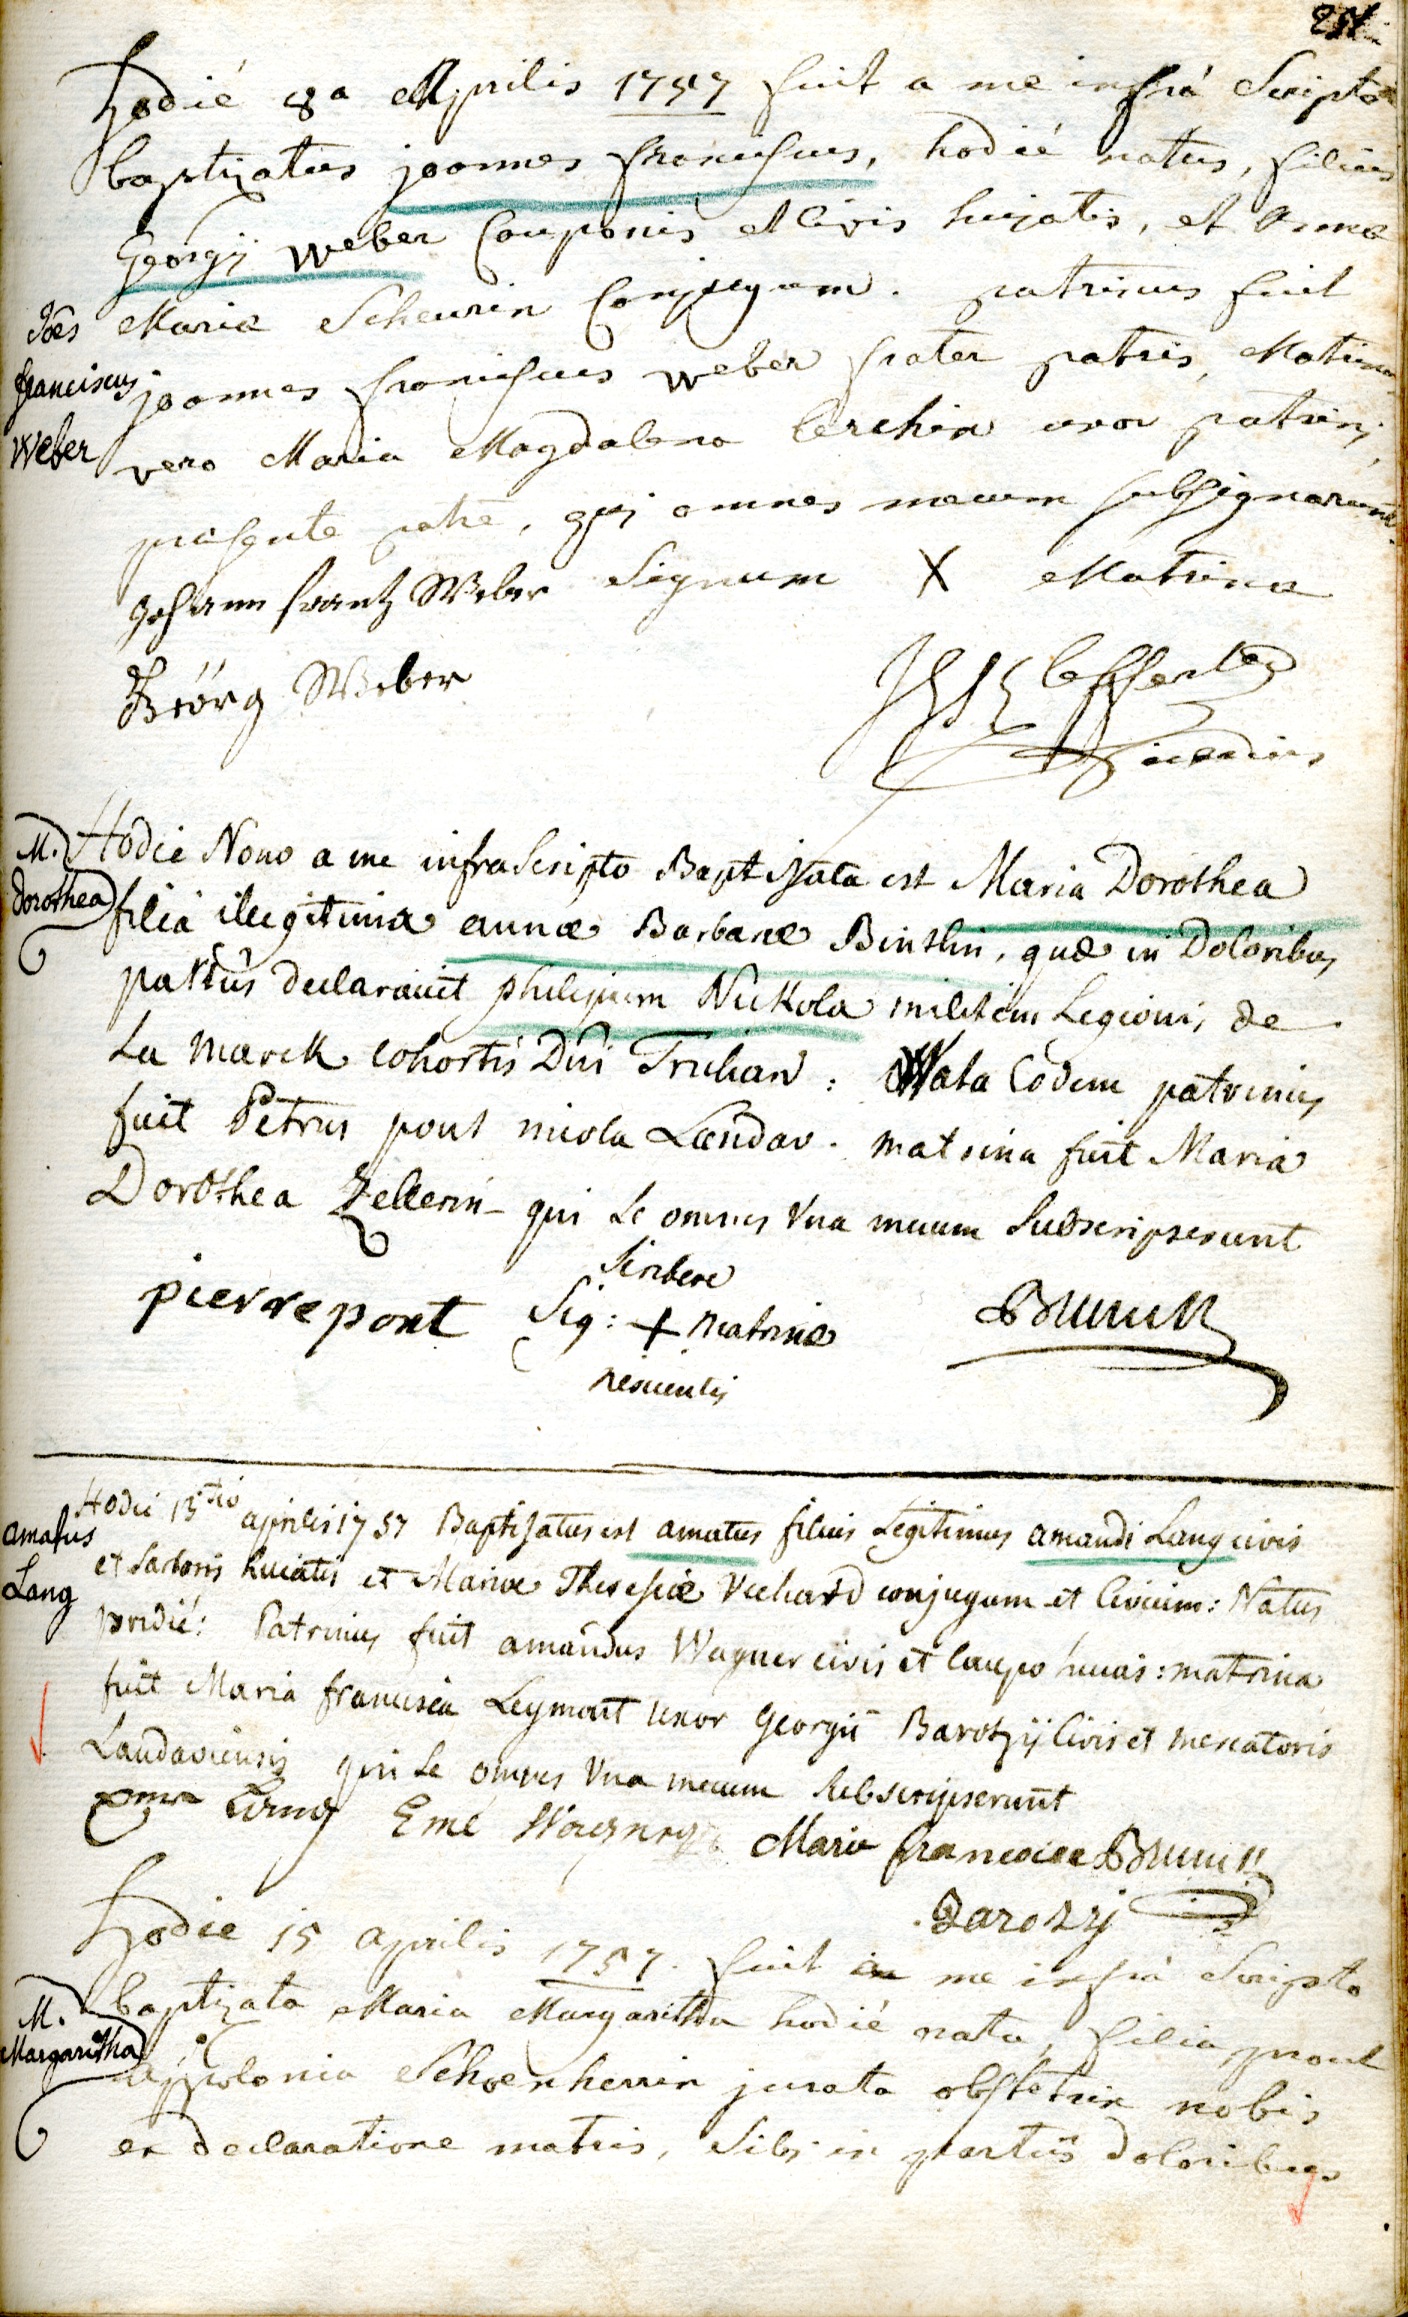 251
Hodié 8a Aprilis 1757 fuit a me infrá Scripto
baptizatus joannes franciscus, hodié natus, filius
Georgij Weber Cauponis et Civis hujatis, et Annæ
Mariæ Scheurin Conjugum. patrinus fuit
Joes
franciscus
Weber
joannes franciscus Weber frater patris, Matrina
vero Maria Magdalena Lerchin uxor patrini,
præsente patre, qui omnes mecum subsignarunt.
Johann frantz Weber Signum X Matrinæ
Geörg Weber
M.
dorothea
Hodie Nono a me infrascripto Baptisata est Maria Dorothea
filia illegitima annæ Barbaræ Binthin, quæ in Doloribus
partus declaravit philipum Nickola militem Legionis de
La Marck cohortis Dni Truchan: Nata Eodem patrinus
fuit Petrus pont incola Landav. matrina fuit Maria
Dorothea Zellerin qui se omnes Una mecum Subscripserunt
pierre pont Sig: + Matrinæ
scribere
nescientis
Amatus
Lang
Hodie 13tio aprilis 1757 Baptisatus est amatus filius Legitimus amandi Lang civis
et Sartoris huiatis et Mariæ Theresiæ Vuchard conjugum et Civium: Natus
pridié: Patrinus fuit amandus Wagner civis et Caupo huias: matrina
fuit Maria francisca Leymont uxor Georgii Barozzij Civis et mercatoris
Landaviensis qui se omnes Una mecum Subscripserunt
Lang Emé Wagner Marie francoise
Barozzi
Hodie 15 aprilis 1757. fuit a me infrá Scripto
M.
Margaritha
baptizata Maria Margaritha hodié nata, filia, prout
appolonia Schoenherrin jurata obstetrix nobis
ex declaratione matris, sibi in partûs doloribus